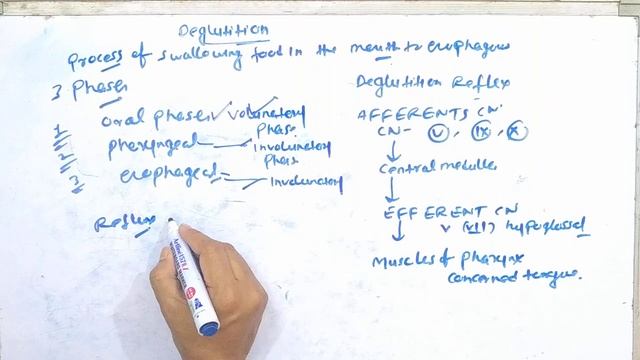 Deglutition
Process of swallowing food in the mouth to esophagus
3 Phases
1 oral phase ✓ voluntary Phase
2 pharyngeal — Involuntary Phase
3 esophageal — Involuntary
Reflex
Deglutition Reflex
AFFERENTS CN
CN- V, IX, X
Central medulla
EFFERENT CN
V (XII) hypoglossal
Muscles of pharynx
concerned tongue.